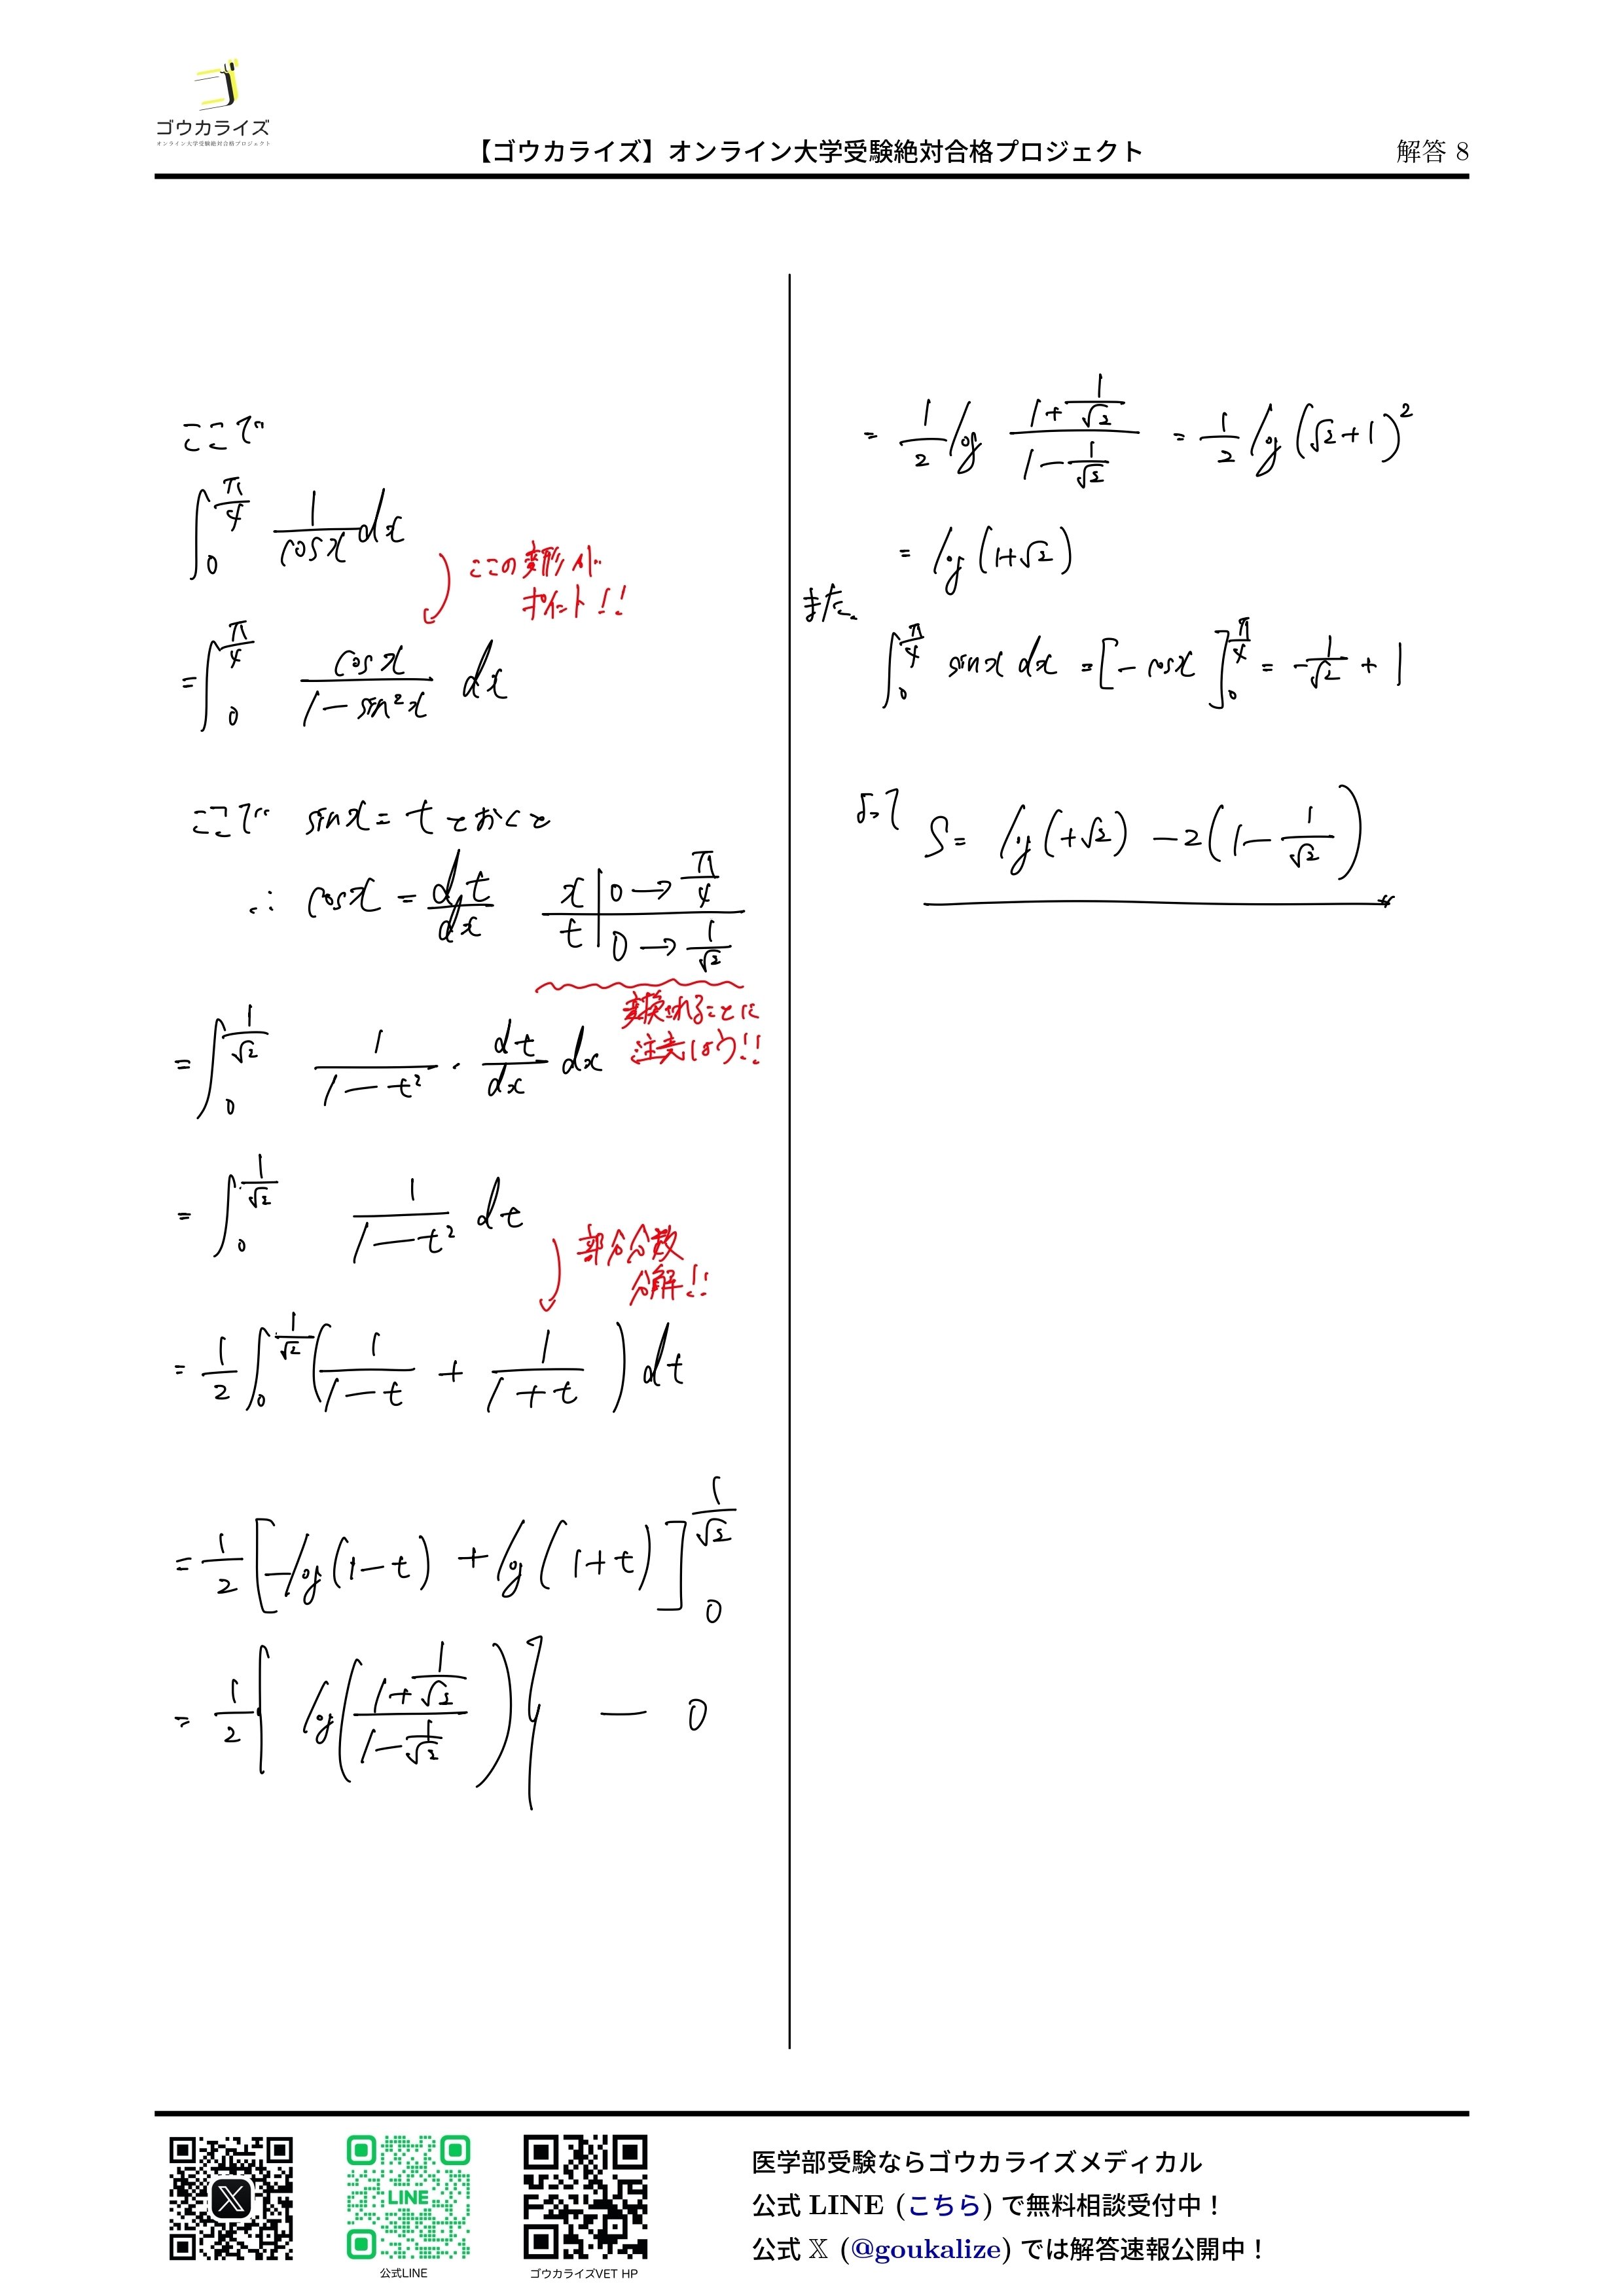 ゴウカライズ
オンライン大学受験絶対合格プロジェクト
【ゴウカライズ】オンライン大学受験絶対合格プロジェクト
解答 8
ここで
∫_0^{π/4} 1/cosx dx
ここの変形が
ポイント!!
= ∫_0^{π/4} cosx/(1-sin²x) dx
ここで sinx = t とおくと
∴ cosx = dt/dx
x | 0 → π/4
t | 0 → 1/√2
変換されることに
注意しよう!!
= ∫_0^{1/√2} 1/(1-t²) · dt/dx dx
= ∫_0^{1/√2} 1/(1-t²) dt
部分分数
分解!!
= 1/2 ∫_0^{1/√2} (1/(1-t) + 1/(1+t)) dt
= 1/2 [-log(1-t) + log(1+t)]_0^{1/√2}
= 1/2 { log((1+1/√2)/(1-1/√2)) } - 0
= 1/2 log (1+1/√2)/(1-1/√2) = 1/2 log(√2+1)²
= log(1+√2)
また、
∫_0^{π/4} sinx dx = [-cosx]_0^{π/4} = -1/√2 + 1
よって S = log(+√2) - 2(1-1/√2)
LINE
公式LINE
ゴウカライズVET HP
医学部受験ならゴウカライズメディカル
公式 LINE (こちら) で無料相談受付中！
公式 𝕏 (@goukalize) では解答速報公開中！